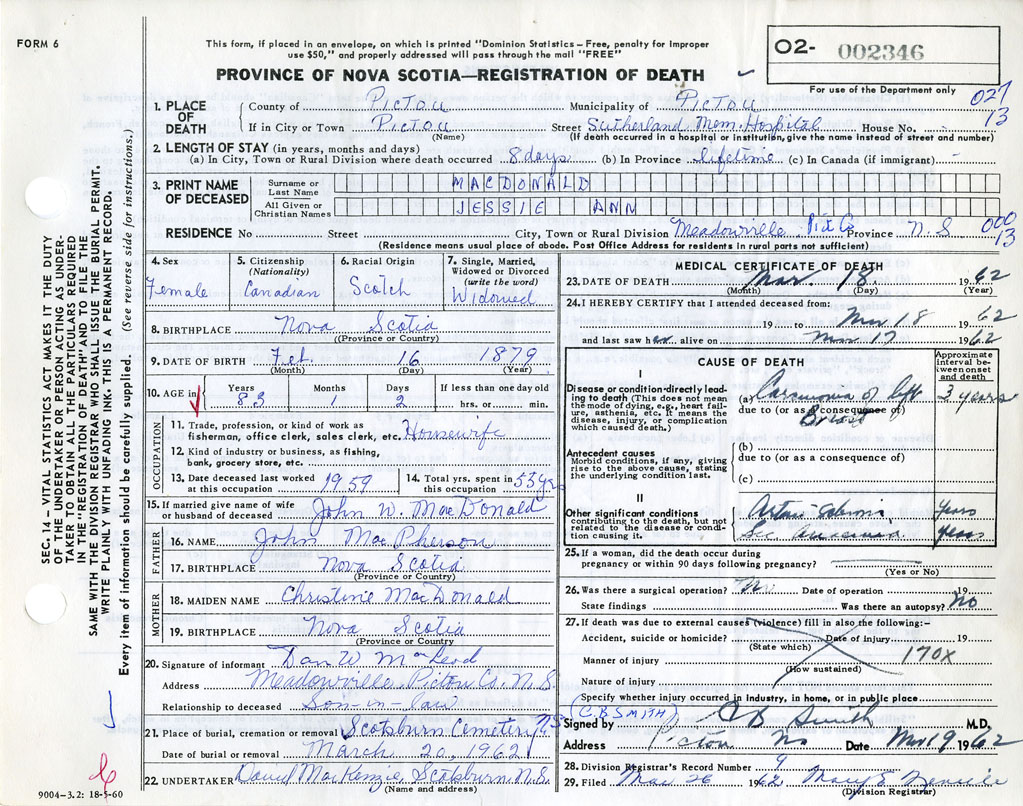 FORM 6
This form, if placed in an envelope, on which is printed "Dominion Statistics – Free, penalty for improper
use $50," and properly addressed will pass through the mail "FREE"
O2- 002346
For use of the Department only
PROVINCE OF NOVA SCOTIA—REGISTRATION OF DEATH
1. PLACE OF DEATH County of Pictou Municipality of Pictou 027
If in City or Town Pictou Street Sutherland Mem. Hospital House No. 13
(Name) (If death in hospital or institution, give the name instead of street and number)
2. LENGTH OF STAY (in years, months and days)
(a) In City, Town or Rural Division where death occurred 8 days (b) In Province lifetime (c) In Canada (if immigrant) -
3. PRINT NAME OF DECEASED Surname or Last Name MACDONALD
All Given or Christian Names JESSIE ANN
RESIDENCE No Street City, Town or Rural Division Meadowville Pict Co Province N.S 000 13
(Residence means usual place of abode. Post Office Address for residents in rural parts not sufficient)
4. Sex Female
5. Citizenship (Nationality) Canadian
6. Racial Origin Scotch
7. Single, Married, Widowed or Divorced (write the word) Widowed
8. BIRTHPLACE Nova Scotia
(Province or Country)
9. DATE OF BIRTH Feb. 16 1879
(Month) (Day) (Year)
10. AGE in Years 83 Months 1 Days 2 If less than one day old hrs. or min.
OCCUPATION
11. Trade, profession, or kind of work as fisherman, office clerk, sales clerk, etc. Housewife
12. Kind of industry or business, as fishing, bank, grocery store, etc.
13. Date deceased last worked at this occupation 1959
14. Total yrs. spent in this occupation 53 yrs
15. If married give name of wife or husband of deceased John W. MacDonald
FATHER
16. NAME John MacPherson
17. BIRTHPLACE Nova Scotia
(Province or Country)
MOTHER
18. MAIDEN NAME Christine MacDonald
19. BIRTHPLACE Nova Scotia
(Province or Country
20. Signature of informant Dan W MacLeod
Address Meadowville, Pictou Co. N.S.
Relationship to deceased Son-in-law
21. Place of burial, cremation or removal Scotsburn Cemetery N.S.
Date of burial or removal March 20, 1962
22. UNDERTAKER MacKenzie, Scotsburn N.S.
(Name and address)
MEDICAL CERTIFICATE OF DEATH
23. DATE OF DEATH Mar. 18. 1962
(Month) (Day) (Year)
24. I HEREBY CERTIFY that I attended deceased from:
19 to Mar 18 1962
and last saw her alive on Mar 17 1962
CAUSE OF DEATH
Approximate interval between onset and death
I
Disease or condition directly leading to death (This does not mean the mode of dying, e.g., heart failure, asthenia, etc. It means the disease, injury, or complication which caused death)
(a) Carcinoma of left 3 years
due to (or as a consequence of) Breast
Antecedent causes
Morbid conditions, if any, giving rise to the above cause, stating the underlying condition last.
(b)
due to (or as a consequence of)
(c)
II
Other significant conditions contributing to the death, but not related to the disease or condition causing it.
years
Sec years
25. If a woman, did the death occur during
pregnancy or within 90 days following pregnancy?
(Yes or No)
26. Was there a surgical operation? No Date of operation 19
State findings Was there an autopsy? No
27. If death was due to external causes (violence) fill in also the following:-
Accident, suicide or homicide? Date of injury 19
(State which)
Manner of injury 170X
(How sustained)
Nature of injury
Specify whether injury occurred in industry, in home, or in public place
(C.B SMITH)
Signed by CB Smith M.D.
Address Pictou NS Date Mar 19 1962
28. Division Registrar's Record Number 9
29. Filed Mar 26 1962 Mary E.
(Division Registrar)
SEC. 14 – VITAL STATISTICS ACT MAKES IT THE DUTY
OF THE UNDERTAKER OR PERSON ACTING AS UNDER-
TAKER TO OBTAIN ALL THE PARTICULARS REQUIRED
IN THE "REGISTRATION OF DEATH" AND TO FILE THE
SAME WITH THE DIVISION REGISTRAR WHO SHALL ISSUE THE BURIAL PERMIT.
WRITE PLAINLY WITH UNFADING INK. THIS IS A PERMANENT RECORD.
Every item of information should be carefully supplied. (See reverse side for instructions.)
9004-3.2: 18-5-60